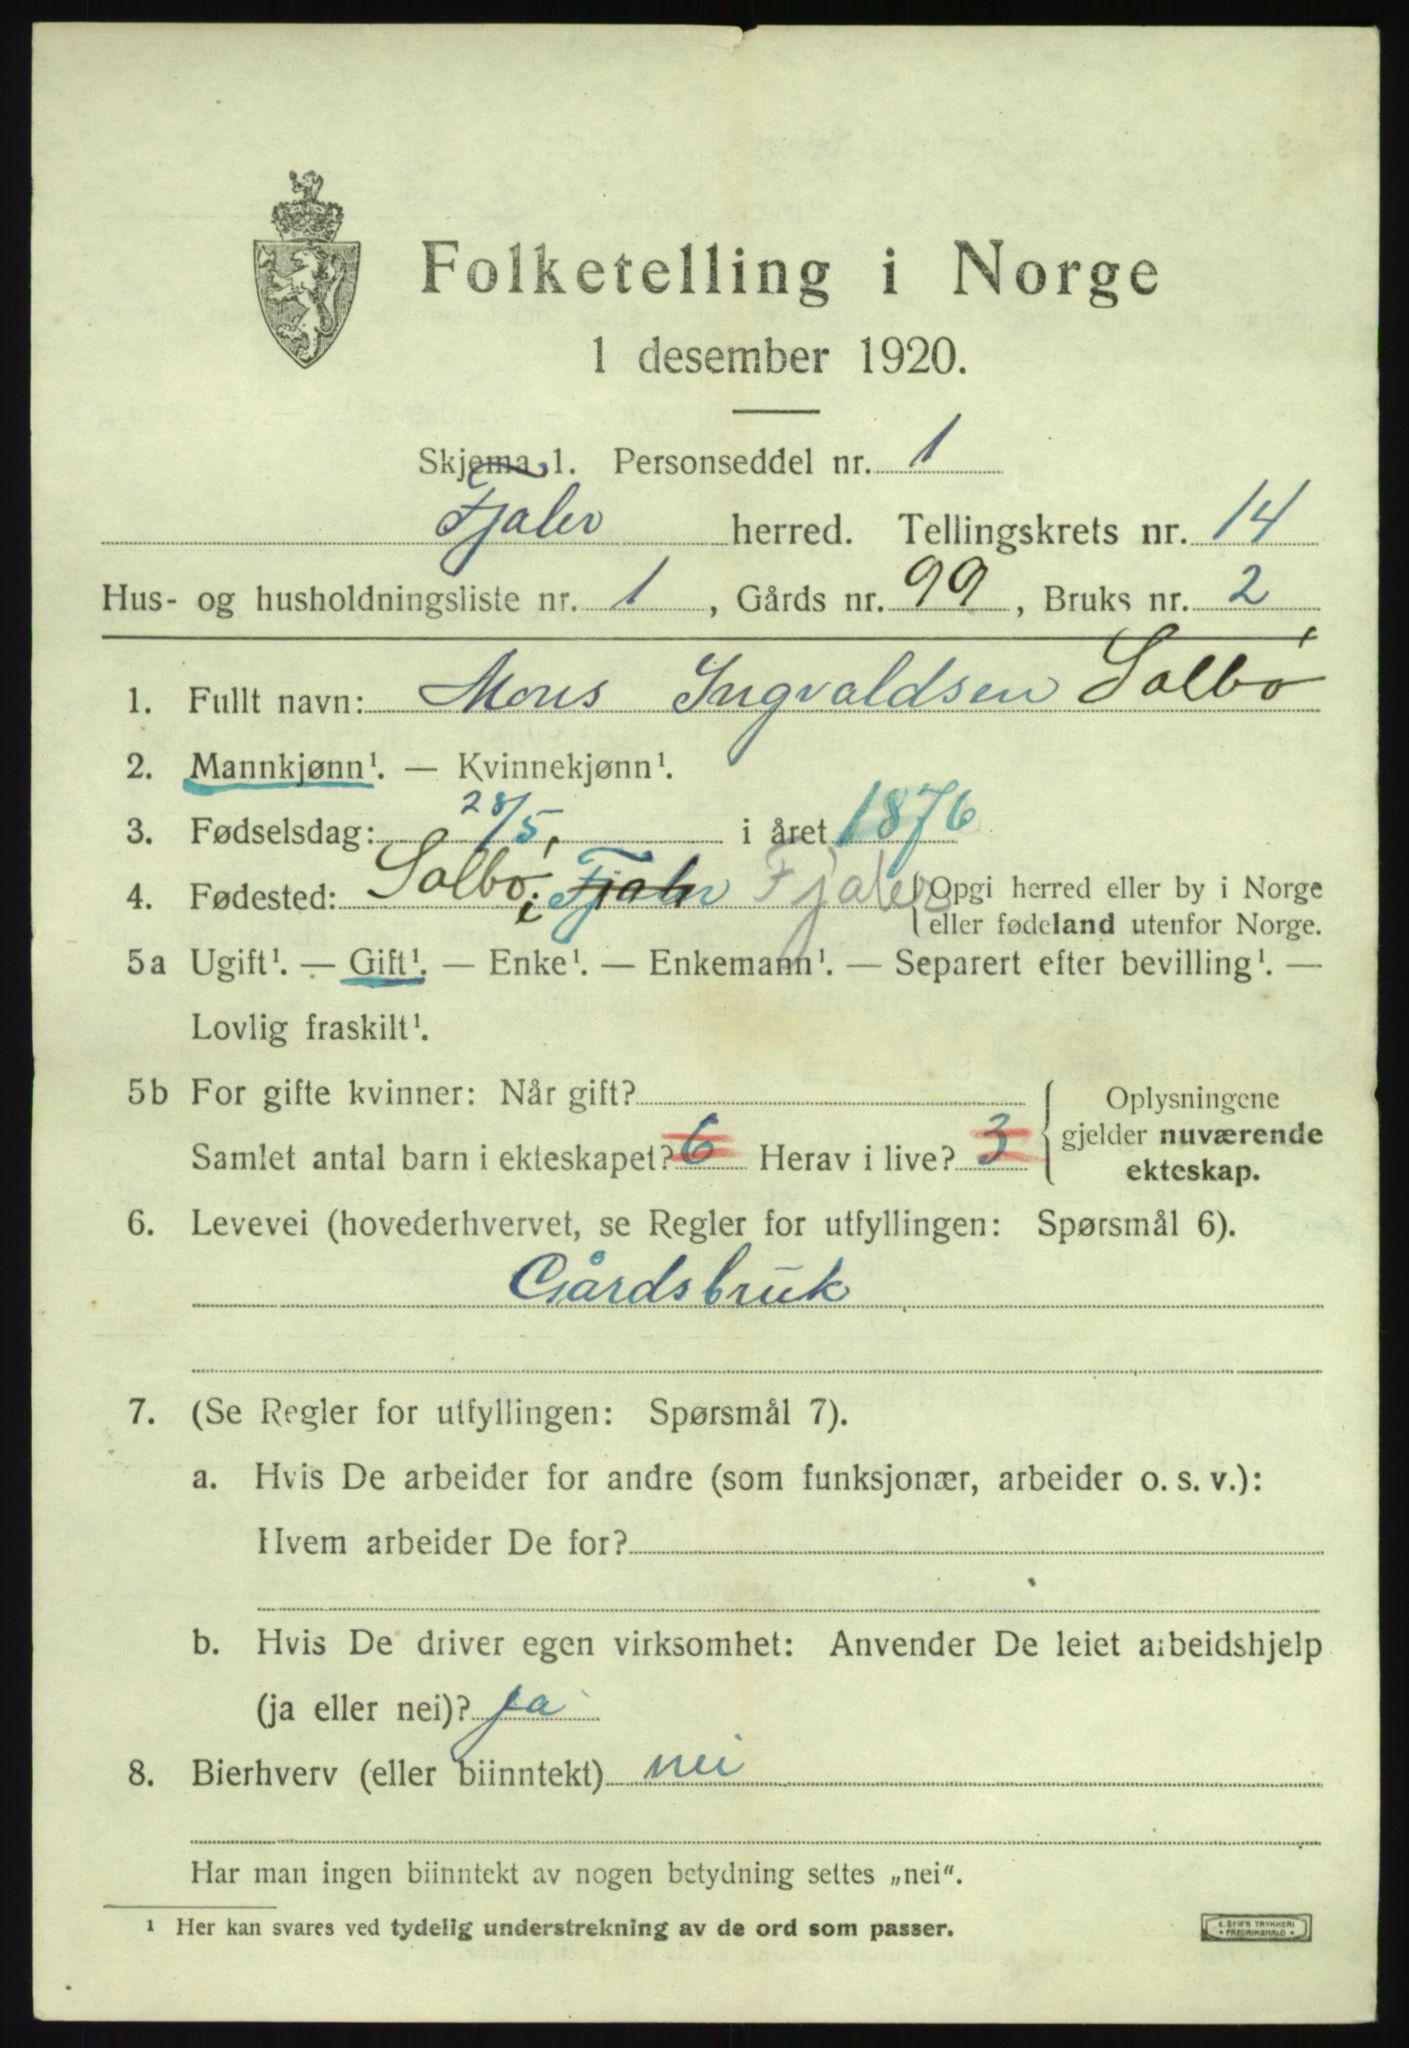 Folketelling i Norge
1 desember 1920.
Skjema 1. Personseddel nr. 1
Fjaler herred. Tellingskrets nr. 14
Hus- og husholdningsliste nr. 1, Gårds nr. 99, Bruks nr. 2
1. Fullt navn: Mons Ingvaldsen Solbø
2. Mannkjønn¹. — Kvinnekjønn¹.
3. Fødselsdag: 28/5, i året 1876
4. Fødested: Solbø, i Fjaler Fjaler {Opgi herred eller by i Norge
eller fødeland utenfor Norge.
5a Ugift¹. — Gift¹. — Enke¹. — Enkemann¹. — Separert efter bevilling¹. —
Lovlig fraskilt¹.
5b For gifte kvinner: Når gift?
Samlet antal barn i ekteskapet? 6 Herav i live? 3
Oplysningene
gjelder nuværende
ekteskap.
6. Levevei (hovederhvervet, se Regler for utfyllingen: Spørsmål 6).
Gårdsbruk
7. (Se Regler for utfyllingen: Spørsmål 7).
a. Hvis De arbeider for andre (som funksjonær, arbeider o. s. v.):
Hvem arbeider De for?
b. Hvis De driver egen virksomhet: Anvender De leiet arbeidshjelp
(ja eller nei)? ja
8. Bierhverv (eller biinntekt) nei
Har man ingen biinntekt av nogen betydning settes „nei“.
¹ Her kan svares ved tydelig understrekning av de ord som passer.
E. SEM'S TRYKKERI
• FREDRIKSHALD •